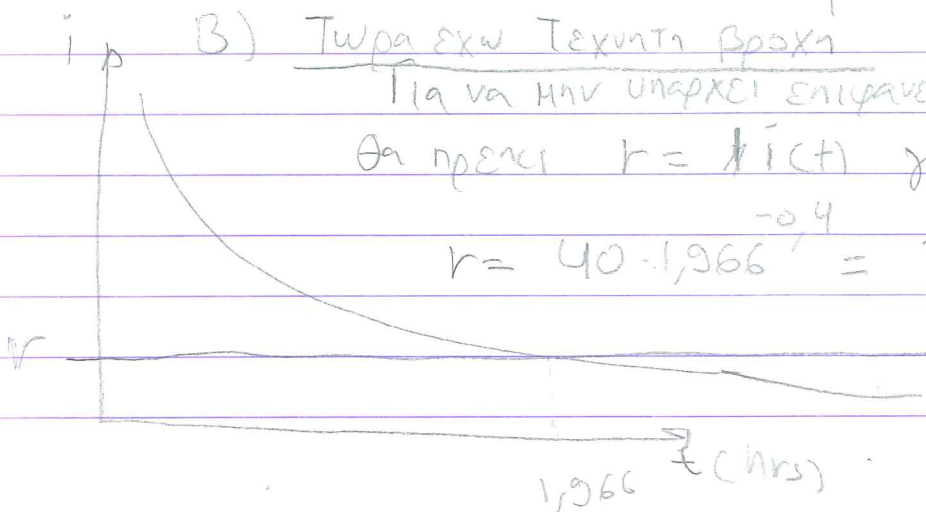 i
B) Τωρα εχω Τεχνητη βροχη
Για να μην υπαρχει επιφανε
θα πρεπει r = i(t) γ
r = 40·1,966^-0,4 =
r
t (hrs)
1,966